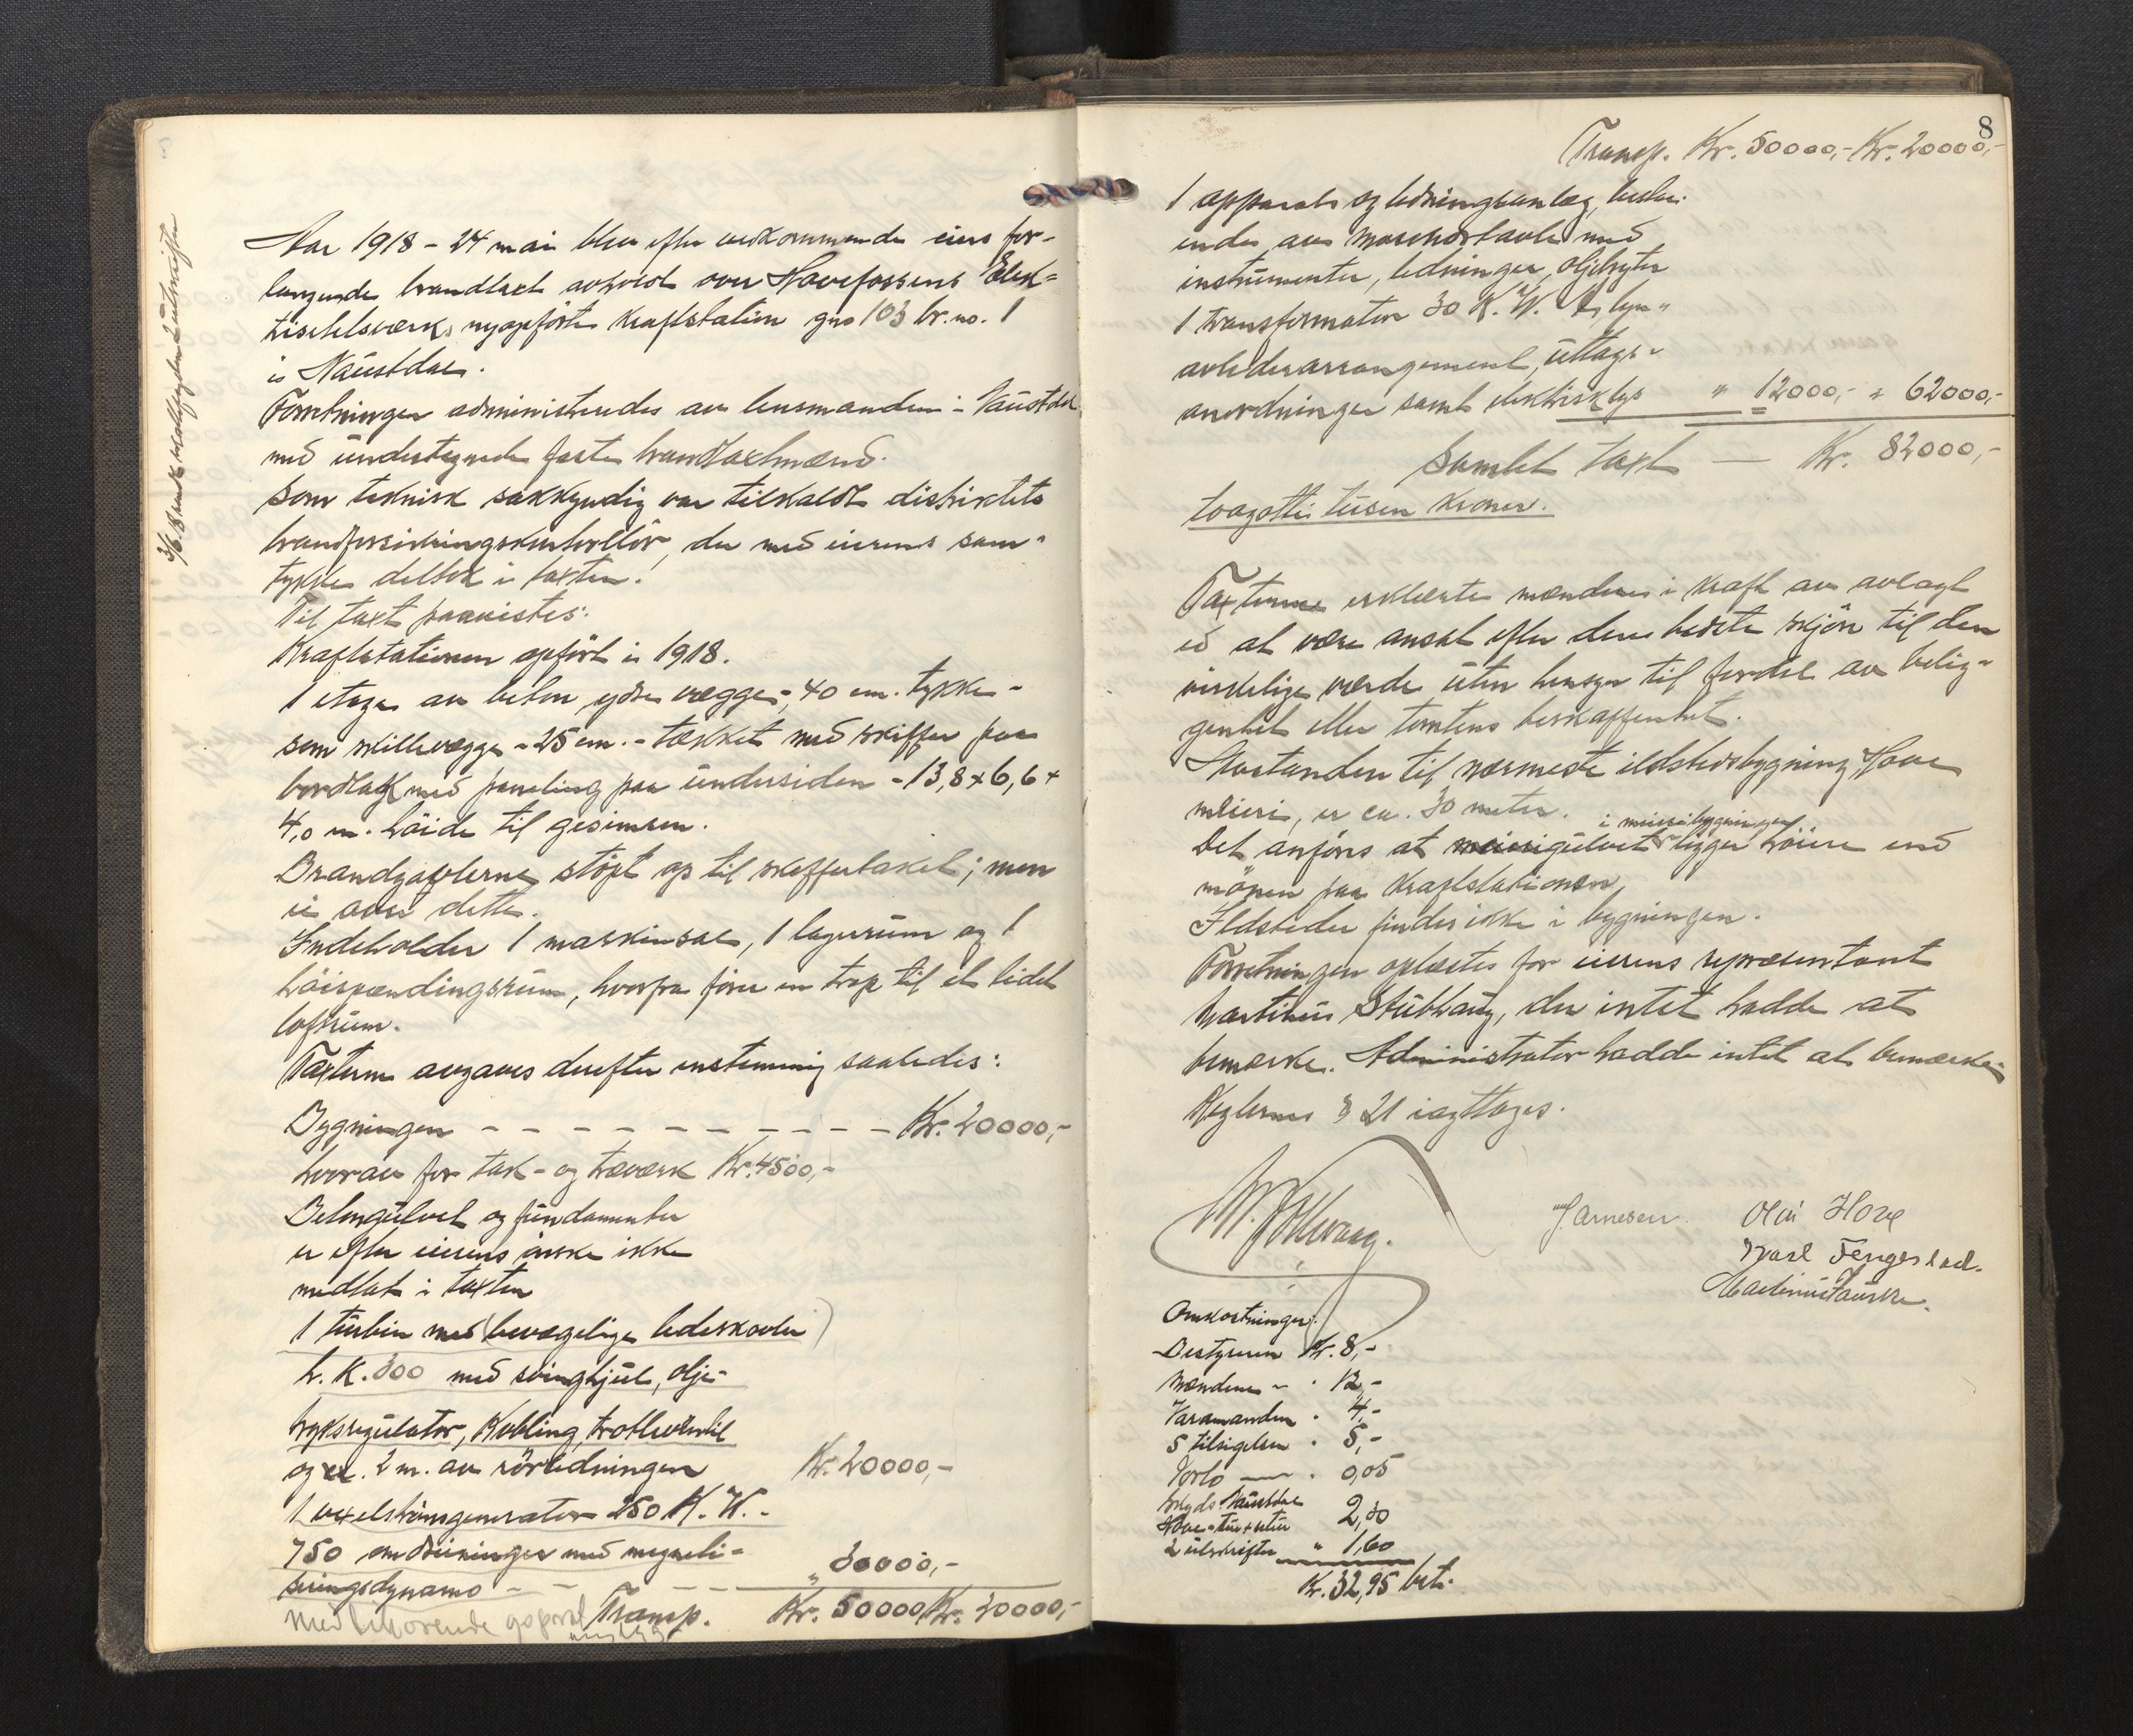 3/6 sendt vedkommende 2 utskrifter
Aar 1918 - 24 mai blev efter vedkommende eiers for-
langende brandtaxt avholdt over Hovefossens Elek-
tricitetsverks nyopførte Kraftstation gno 103 br.no. 1
i Naustdal.
Forretningen administreredes av lensmanden i Naustdal
med undertegnede faste brandtaxtmænd.
Som teknisk sakkyndig var tilkaldt distriktets
brandforsikringskontrollør, der med eierens sam-
tykke deltok i taxten.
Til taxt paavistes:
Kraftstationen opført i 1918.
1 etage av beton, ydre vægge - 40 cm. tykke -
som skillevægge - 25 cm. - tækket med skiffer paa
bordtak med paneling paa undersiden - 13,8 x 6,6 x
4,0 m. høide til gesimsen.
Brandgavlerne støpt op til skiffertaket; men
ei over dette.
Indeholder 1 maskinsal, 1 lagerrum og 1
høispændingsrum, hvorfra fører en trap til et lidet
loftrum.
Taxterne avgaves derefter enstemmig saaledes:
Bygningen - - - - - - - - - - Kr. 20000,-
hvorav for tak- og træverk Kr. 4500,-
Betongulvet og fundamenter
er efter eierens ønske ikke
medtat i taxten
1 turbin med (bevægelige ledeskovler)
h. K. 300 med svinghjul, olje-
tryksregulator, Kobling, trotleventil
og ca. 2 m. av rørledningen Kr. 20000,-
1 vexelstrømsgenerator 250 K. W. -
750 omdreininger med magneti-
seringsdynamo - - - - " 30000,-
Med tilhørende
Transp. Kr. 50000 Kr. 20000,-
8
Transp. Kr. 50000,- Kr. 20000,-
1 apparat- og ledningsanlæg, bestaa-
ende av marmortavle med
instrumenter, ledninger, oljebryter
1 transformator 30 K. W. lyn-
avlederarrangement, uttags-
anordninger samt elektrisk lys " 12000,- " 62000,-
Samlet taxt — Kr. 82000,-
toogotti tusen kroner.
Taxterne erklærte mændene i kraft av avlagt
ed at være ansat efter deres bedste skjøn til den
virkelige værde uten hensyn til fordel av belig-
genhet eller tomtens beskaffenhet.
Avstanden til nærmeste ildstedsbygning, Hove
meieri, er ca. 30 meter.
i meieribygningen
Det anføres at meierigulvet ligger høiere end
mønen paa Kraftstationen.
Ildsteder findes ikke i bygningen.
Forretningen oplæstes for eierens repræsentant
Martinus Stubhaug, der intet hadde at
bemerke. Administrator hadde intet at bemærke.
Reglernes § 21 iagttages.
J. Arnesen. Olai Hove
Karl Fengestad.
Martinus
Omkostninger:
Bestyreren Kr. 8,-
Mændene - " 12,-
Varamanden " 4,-
5 tilsigelser " 5,-
Porto — " 0,05
Skyds Naustdal
Hove - tur + retur 2,30
2 utskrifter " 1,60
Kr. 32,95 bet.